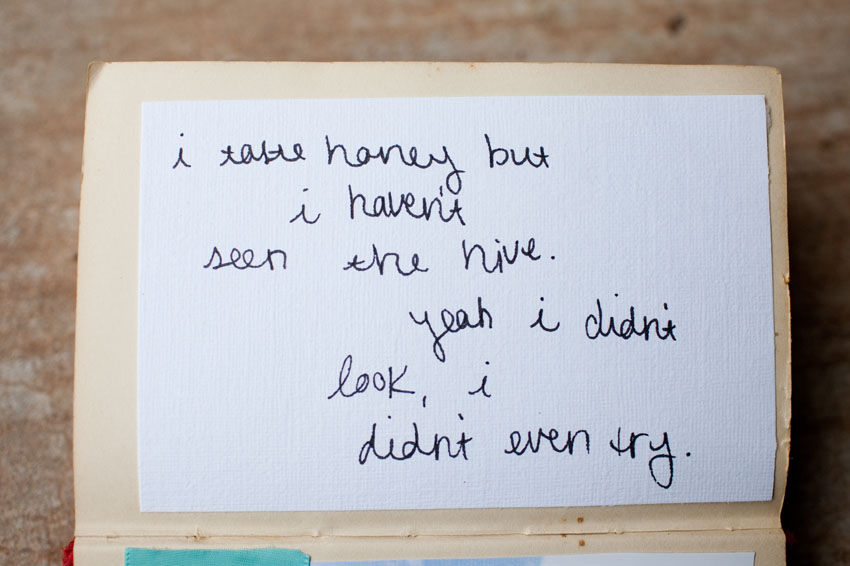 i taste honey but
i haven't
seen the hive.
yeah i didn't
look, i
didn't even try.